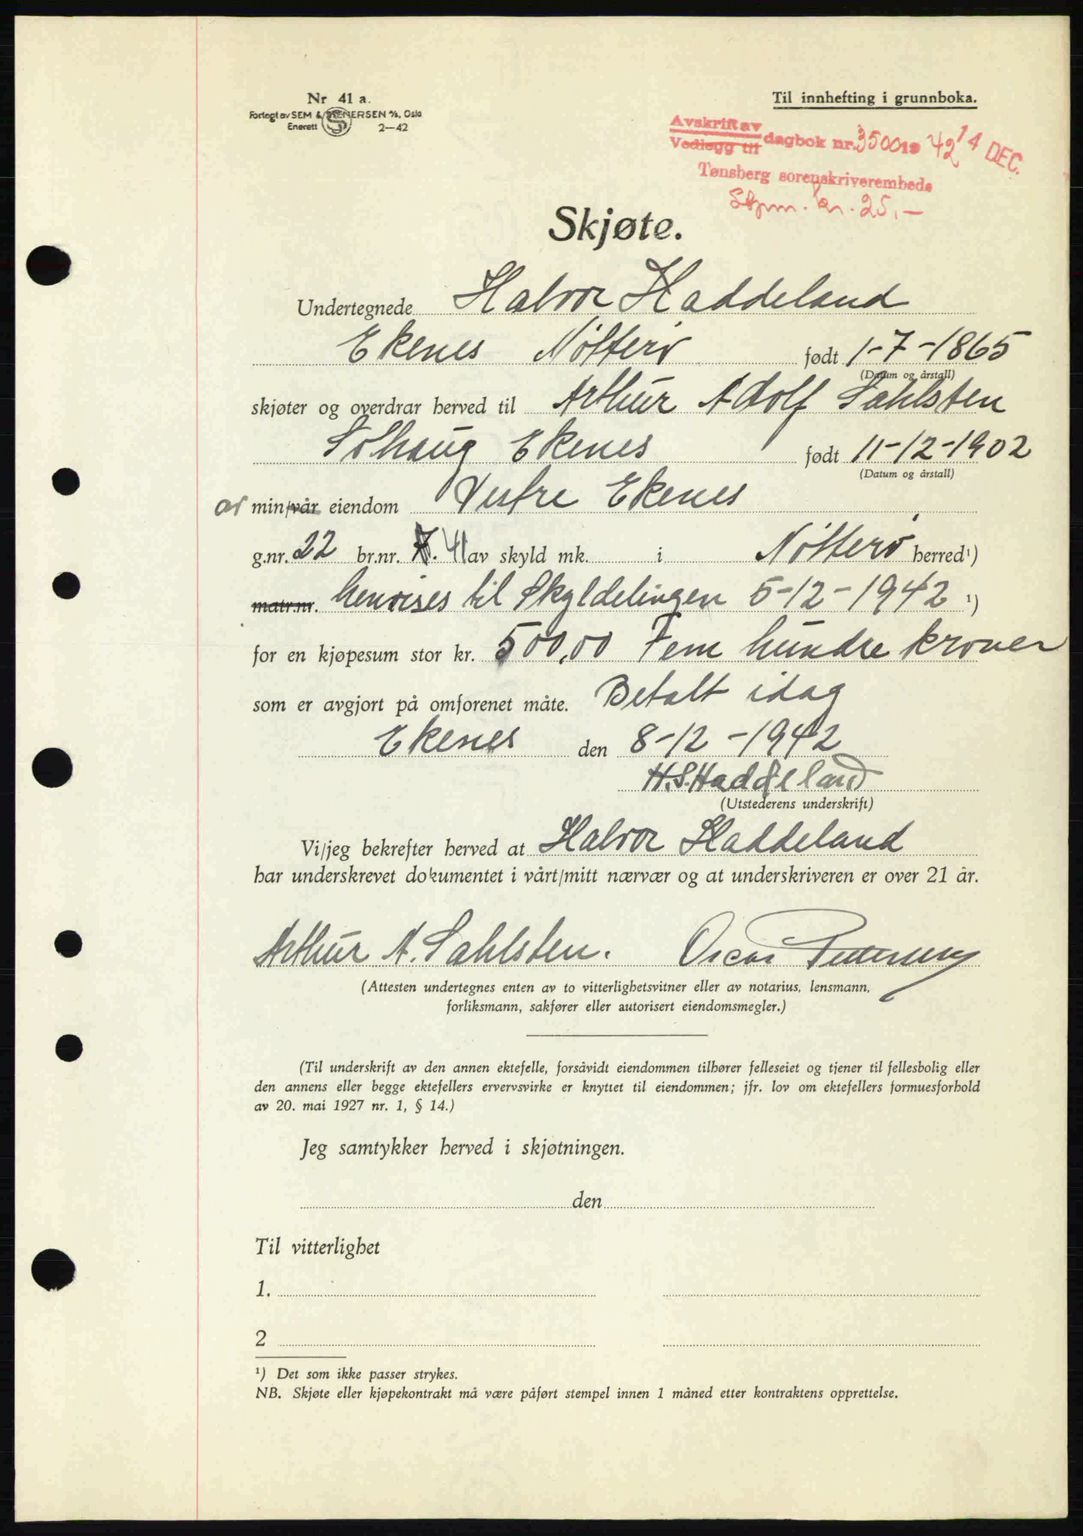 Nr 41 a.
Forlagt av SEM & STENERSEN A/S, Oslo
Enerett 2-42
Til innhefting i grunnboka.
Avskrift av
Vedlegg til dagbok nr. 3500 19 42 14 DEC.
Tønsberg sorenskriverembede
Stpm. kr. 25.-
Skjøte.
Undertegnede Halvor Haddeland
Ekenes Nøtterø født 1-7-1865
(Datum og årstall)
skjøter og overdrar herved til Arthur Adolf Sahlsten
Solhaug Ekenes født 11-12-1902
(Datum og årstall)
av min/vår eiendom Vestre Ekenes
g.nr. 22 br.nr. 7. 41 av skyld mk. i Nøtterø herred¹)
matr.nr. henvises til Skyldelingen 5-12-1942 ¹)
for en kjøpesum stor kr. 500,00 Fem hundre kroner
som er avgjort på omforenet måte. Betalt idag
Ekenes den 8-12-1942
H.S. Haddeland
(Utstederens underskrift)
Vi/jeg bekrefter herved at Halvor Haddeland
har underskrevet dokumentet i vårt/mitt nærvær og at underskriveren er over 21 år.
Arthur A. Sahlsten. Oscar Pettersen
(Attesten undertegnes enten av to vitterlighetsvitner eller av notarius, lensmann,
forliksmann, sakfører eller autorisert eiendomsmegler.)
(Til underskrift av den annen ektefelle, forsåvidt eiendommen tilhører felleseiet og tjener til fellesbolig eller
den annens eller begge ektefellers ervervsvirke er knyttet til eiendommen; jfr. lov om ektefellers formuesforhold
av 20. mai 1927 nr. 1, § 14.)
Jeg samtykker herved i skjøtningen.
den
Til vitterlighet
1.
2
¹) Det som ikke passer strykes.
NB. Skjøte eller kjøpekontrakt må være påført stempel innen 1 måned etter kontraktens opprettelse.